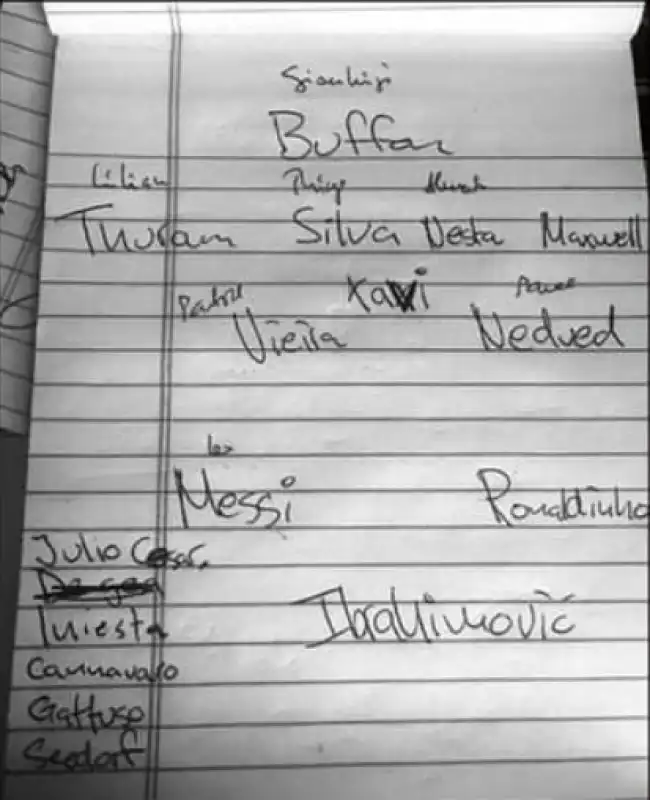 Gianluigi
Buffon
Lilian Thiago
Thuram Silva Nesta Maxwell
Patrick Xavi Pavel
Vieira Nedved
Leo
Messi Ronaldinho
Julio Cesar.
Iniesta Ibrahimović
Cannavaro
Gattuso
Seedorf